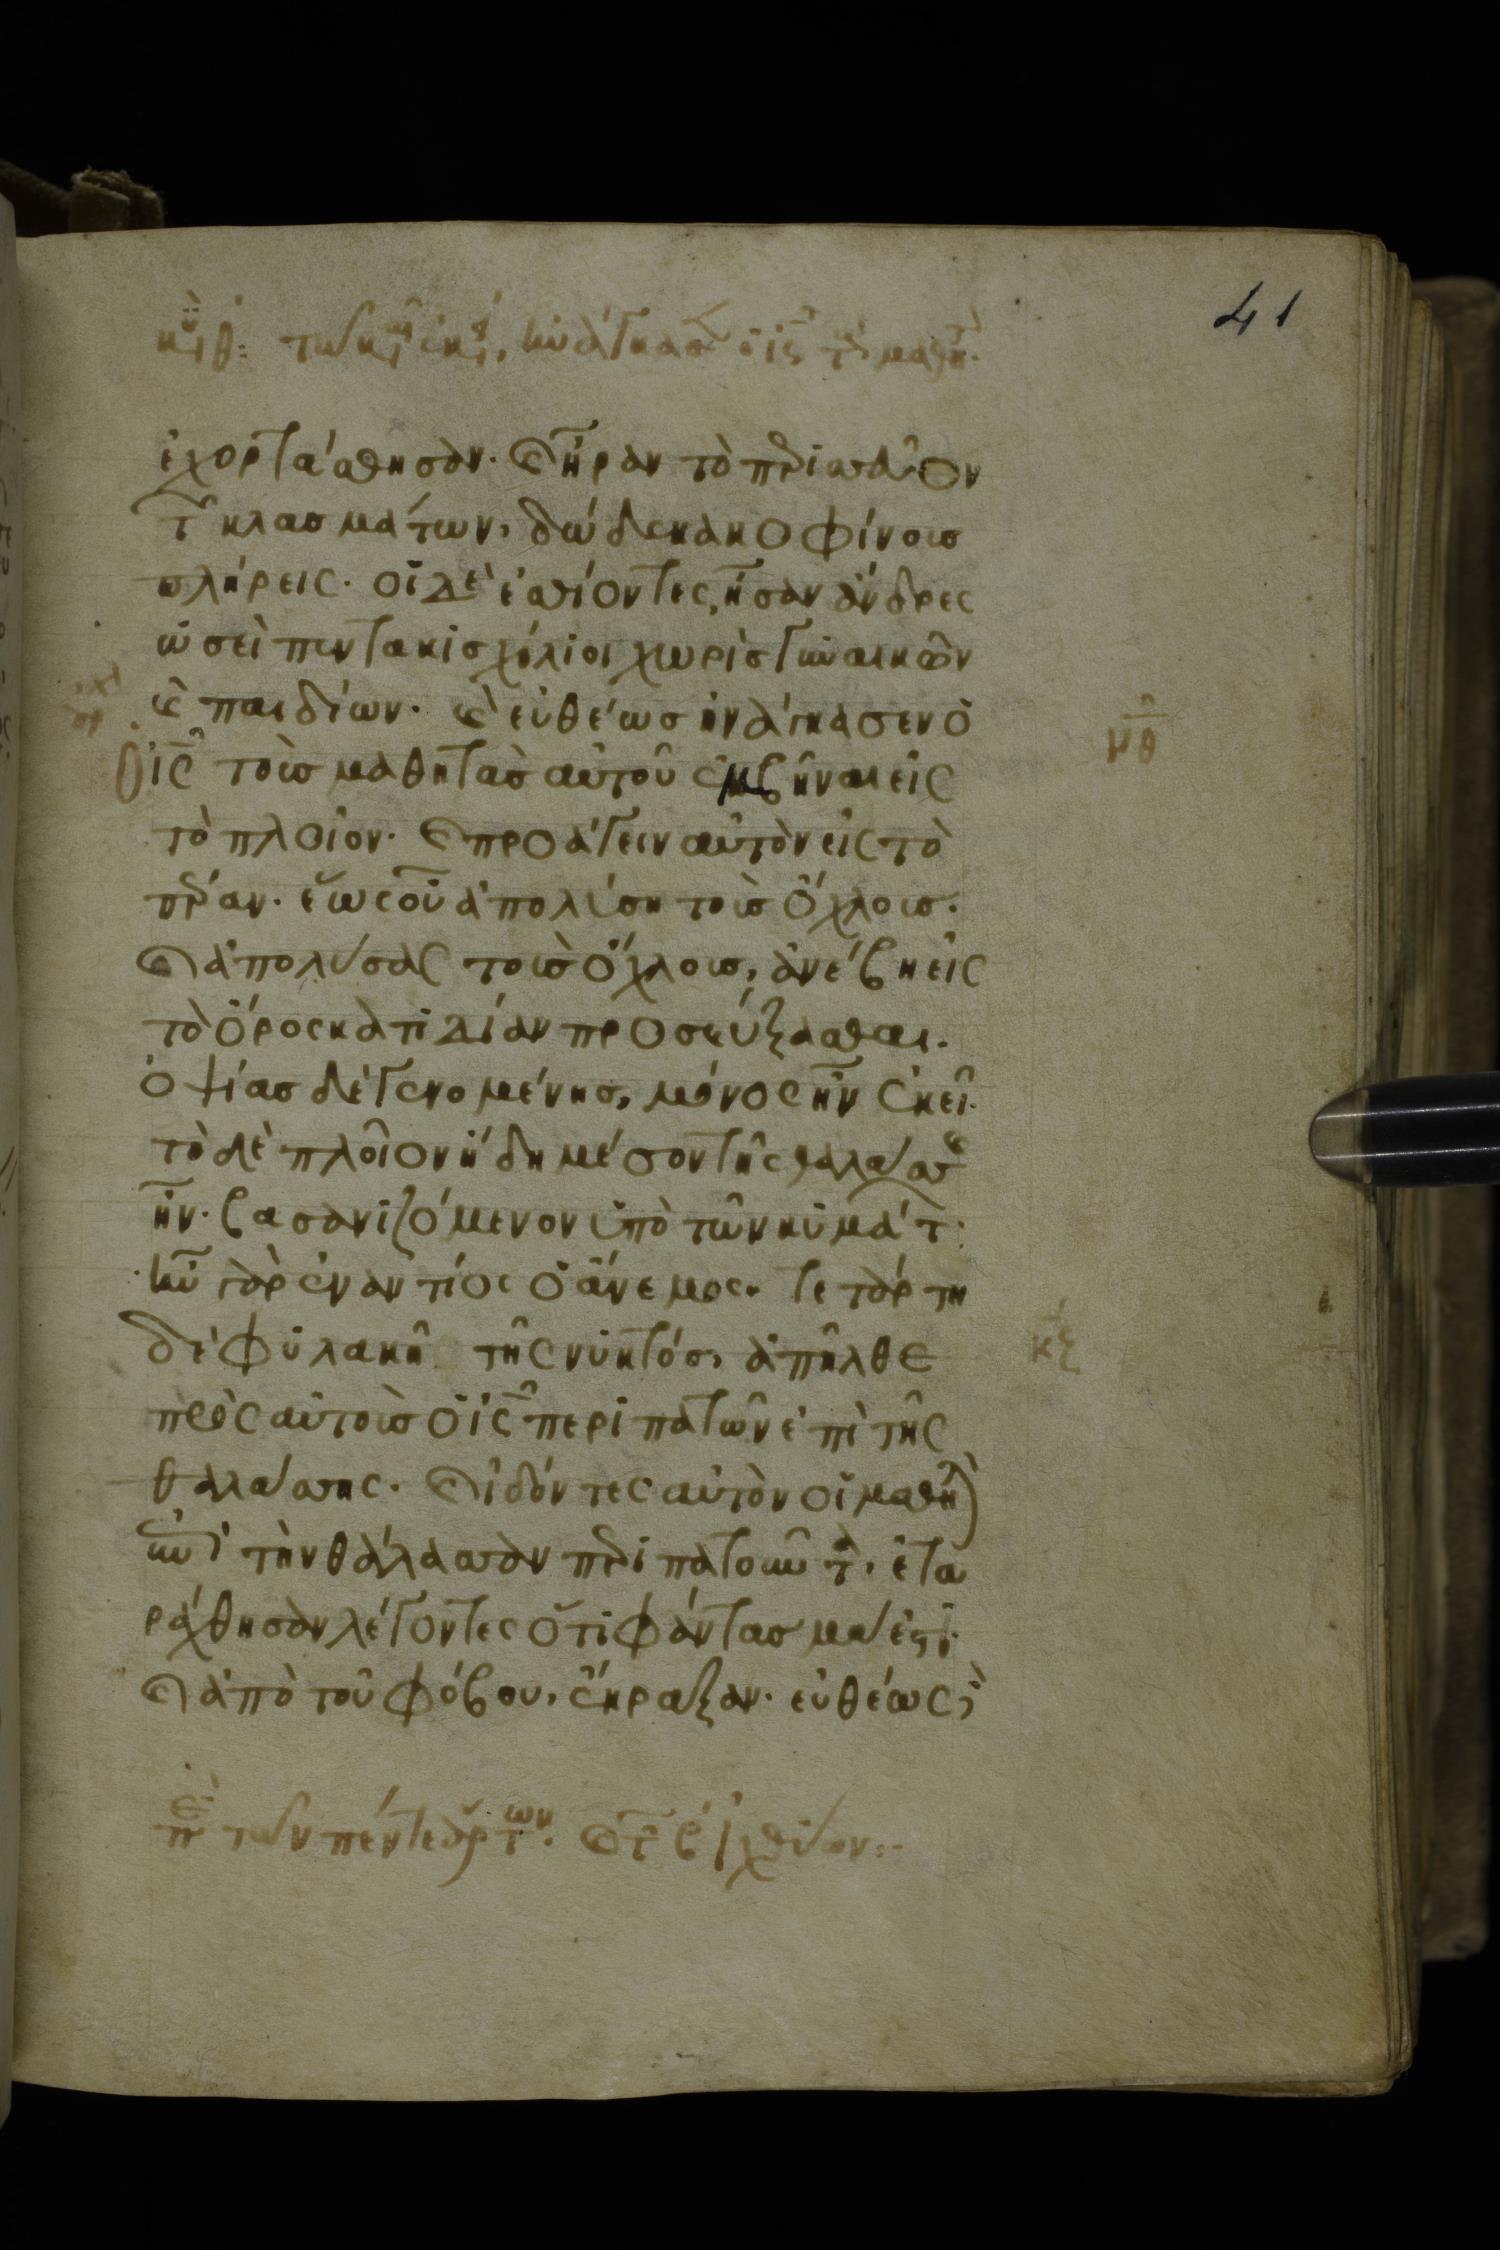 41
ἐχορτάσθησαν. καὶ ἦραν τὸ περισσεῦον
τῶν κλασμάτων, δώδεκα κοφίνους
πλήρεις. οἱ δὲ ἐσθίοντες, ἦσαν ἄνδρες
ὡσεὶ πεντακισχίλιοι χωρὶς γυναικῶν
καὶ παιδίων. καὶ εὐθέως ἠνάγκασεν ὁ
ὁ ις τοὺς μαθητὰς αὐτοῦ ἐμβῆναι εἰς
τὸ πλοῖον. καὶ προάγειν αὐτὸν εἰς τὸ
πέραν. ἕως οὗ ἀπολύσῃ τοὺς ὄχλους.
καὶ ἀπολύσας τοὺς ὄχλους, ἀνέβη εἰς
τὸ ὄρος κατιδίαν προσεύξασθαι.
ὀψίας δὲ γενομένης, μόνος ἦν ἐκεῖ.
τὸ δὲ πλοῖον ἤδη μέσον τῆς θαλάσσης
ἦν. βασανιζόμενον ὑπὸ τῶν κυμάτ.
ἦν γὰρ ἐναντίος ὁ ἄνεμος. τετάρτη
δὲ φυλακῆ τῆς νυκτός, ἀπῆλθε
πρὸς αὐτοὺς ὁ ις περιπατῶν ἐπὶ τῆς
θαλάσσης. καὶ ἰδόντες αὐτὸν οἱ μαθη
ἐπὶ τὴν θάλασσαν περιπατοῦντα, ἐτα
ράχθησαν λέγοντες ὅτι φάντασμά ἐστι.
καὶ ἀπὸ τοῦ φόβου, ἔκραξαν. εὐθέως
μθ
κξ
τῶν πέντε ἄρτων. καὶ τῶν β ἰχθύων: